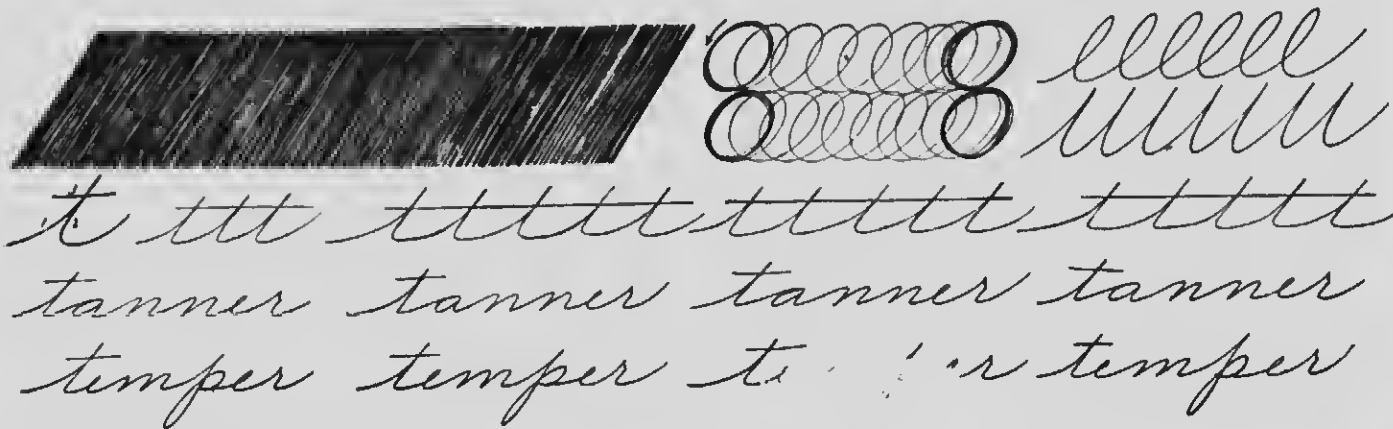 t ttt ttttt ttttt ttttt
tanner tanner tanner tanner
temper temper temper